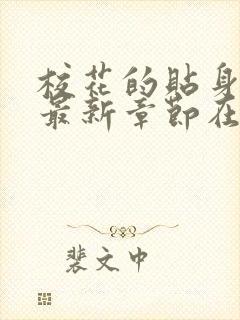 校花的贴身
最新章节在
裴文中